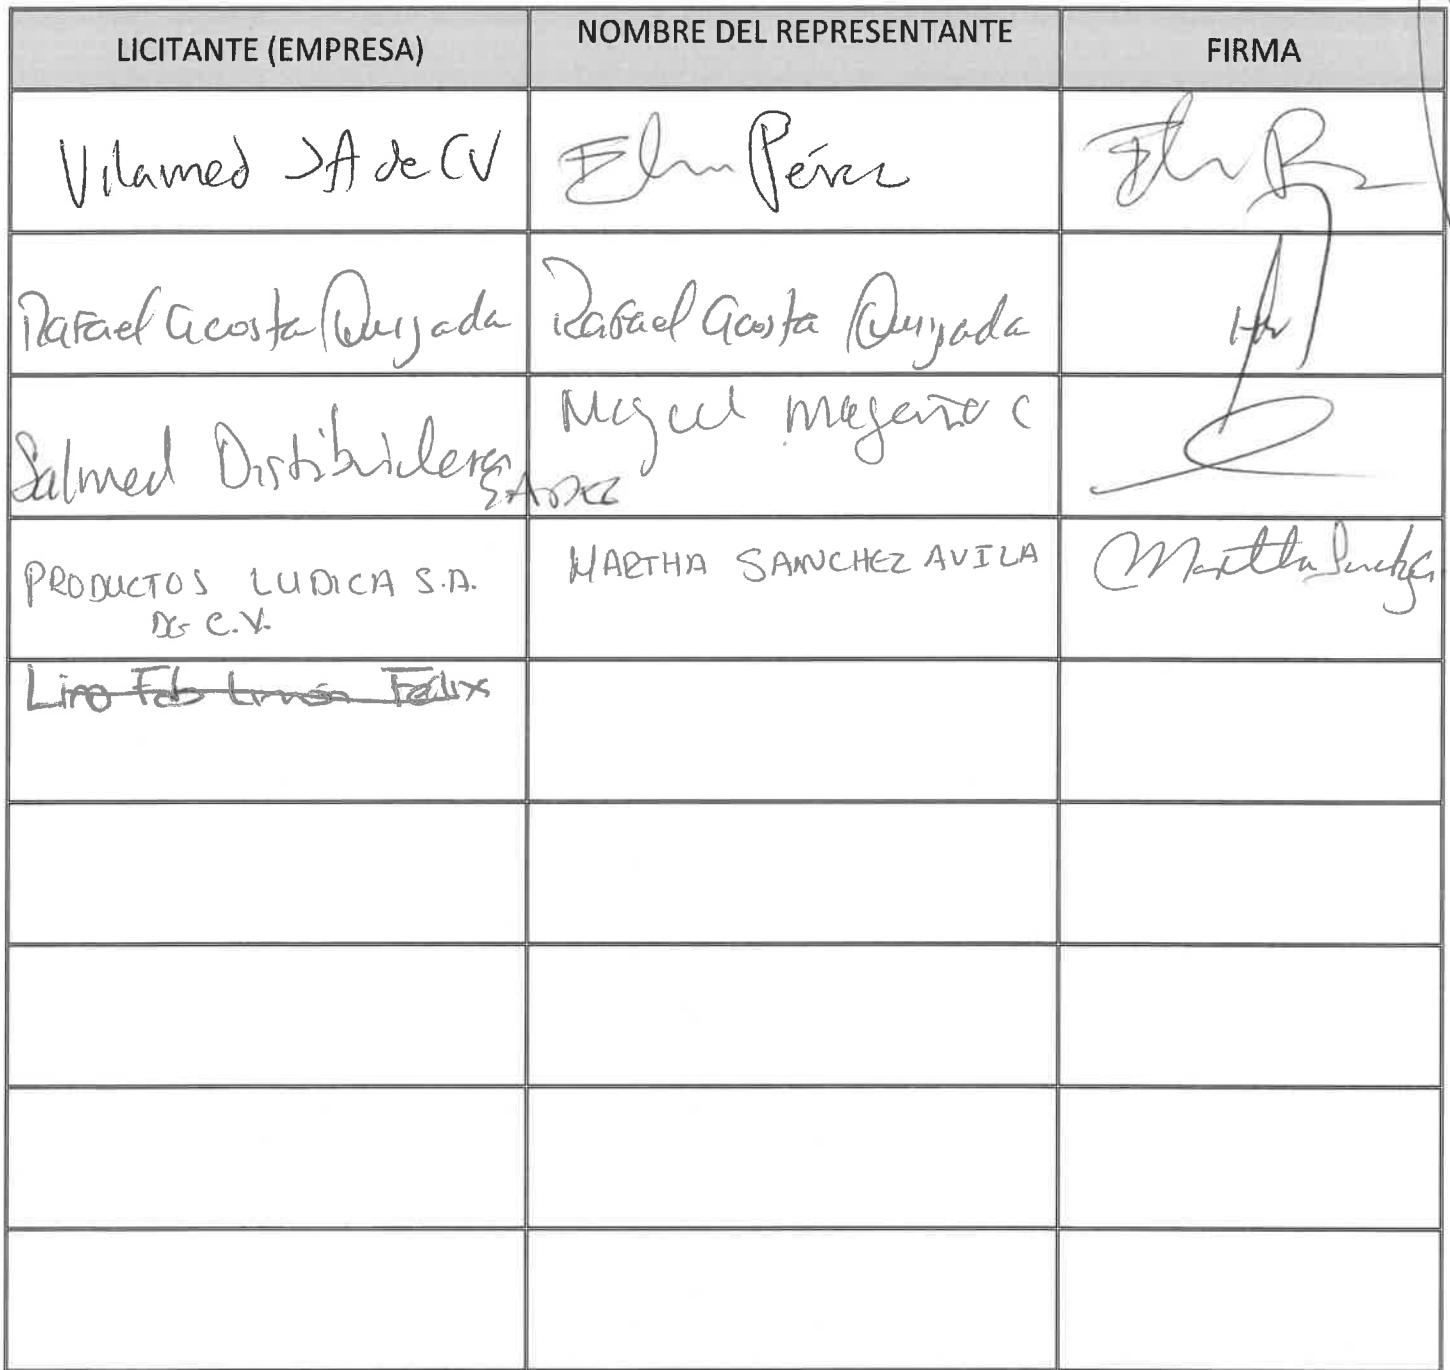 LICITANTE (EMPRESA)
NOMBRE DEL REPRESENTANTE
FIRMA
Vilamed SA de CV
Pérez
Rafael Acosta Quijada
Rafael Acosta Quijada
Salmed Distribuidora
Miguel C
PRODUCTOS LUDICA S.A.
DE C.V.
MARTHA SANCHEZ AVILA
Martha Sanchez
Félix